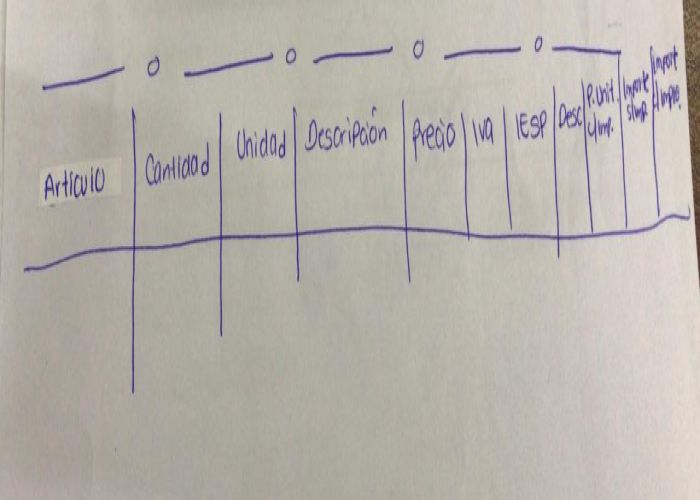 — o — o — o — o —
Articulo Cantidad Unidad Descripción Precio IVA IESP Desc P.Unit. c/Imp. Importe s/Imp Importe c/Impte.